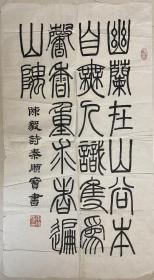 幽蘭在山谷本
自無人識只為
馨香重求者遍
山隅
陳毅詩秦順寶書